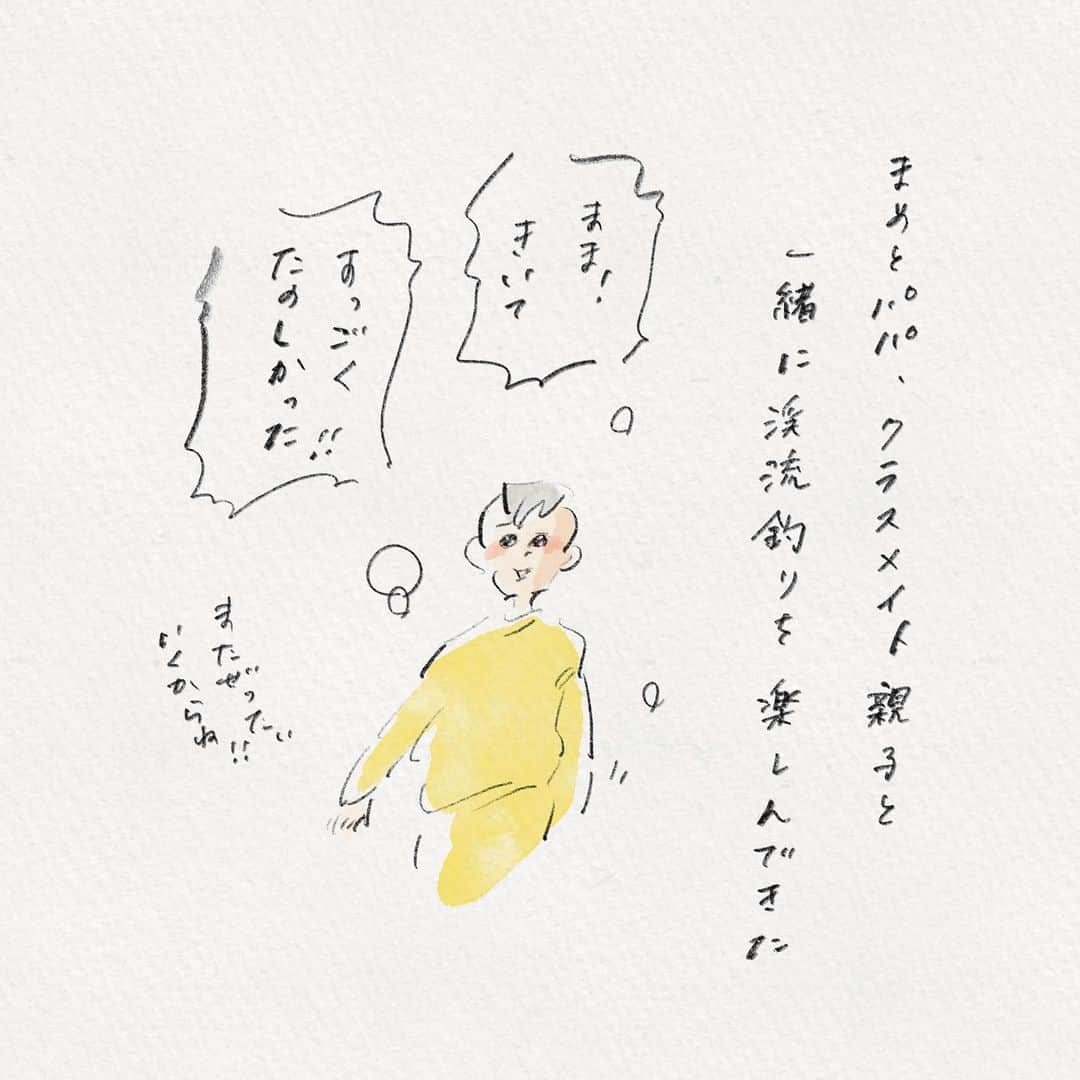 まめとパパ、クラスメイト親子と
一緒に渓流釣りを楽しんできた
まま！
きいて
すっごく
たのしかった!!
またぜったい
いくからね!!